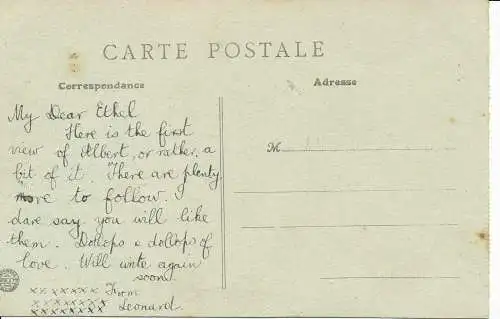 CARTE POSTALE
Correspondance
Adresse
My Dear Ethel
Here is the first
view of Albert, or rather, a
bit of it. There are plenty
more to follow. I
dare say you will like
them. Dollops & dollops of
love. Will write again
soon.
x x x x x x From
x x x x x x x Leonard.
x x x x x x x x
M